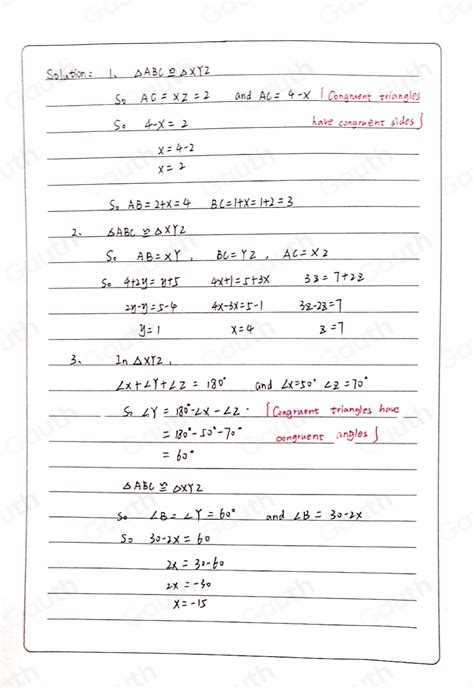 Solution: 1. △ABC ≌ △XYZ
So AC = XZ = 2 and AC = 4-x [Congruent triangles
So 4-x = 2 have congruent sides]
x = 4-2
x = 2
So AB = 2+x = 4 BC = 1+x = 1+2 = 3
2. △ABC ≌ △XYZ
So AB = XY, BC = YZ, AC = XZ
So 4+2y = y+5 4x+1 = 5+3x 3z = 7+2z
2y-y = 5-4 4x-3x = 5-1 3z-2z = 7
y = 1 x = 4 z = 7
3. In △XYZ,
∠X+∠Y+∠Z = 180° and ∠X=50° ∠Z = 70°
So ∠Y = 180°-∠X-∠Z. [Congruent triangles have
= 180°-50°-70° congruent angles]
= 60°
△ABC ≌ △XYZ
So ∠B = ∠Y = 60° and ∠B = 30-2x
So 30-2x = 60
2x = 30-60
2x = -30
x = -15